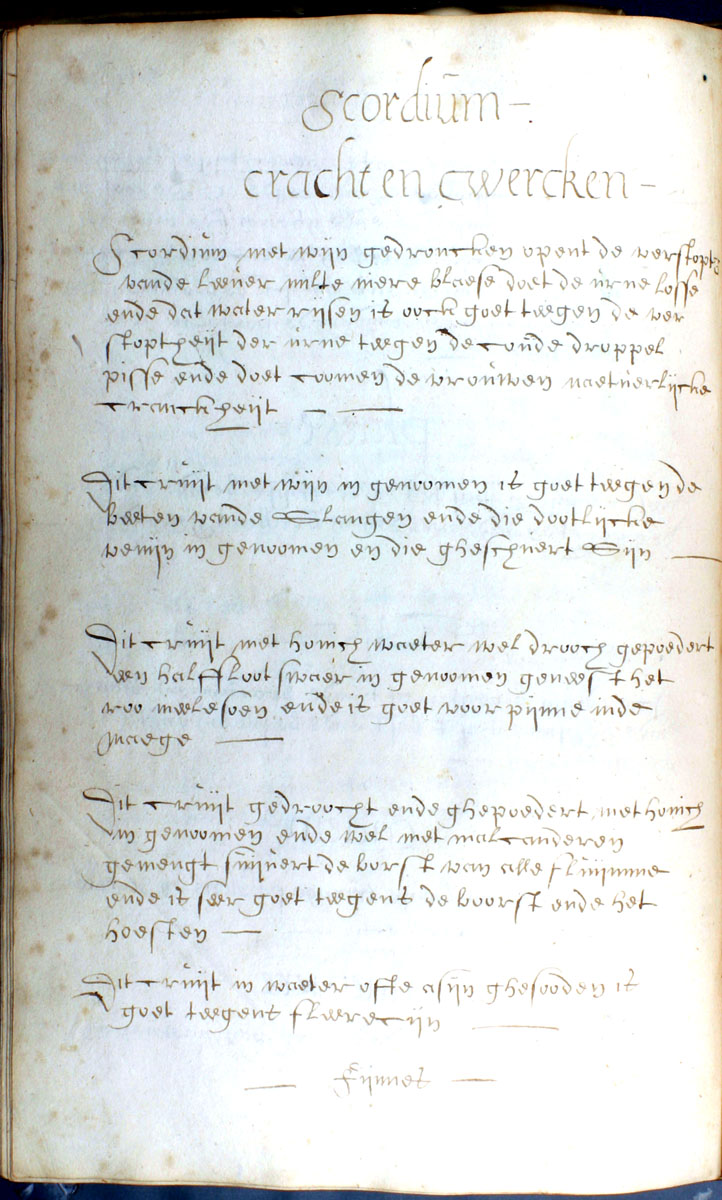 Scordium –.
cracht en, Cwercken –
Scordium met wijn gedroncken opent de verstopth
vande leever milte niere blaese doet de urne losse
ende dat water rijsen is oock goet teegen de ver
stoptheijt der urne teegen de coude droppel
pisse ende doet coomen de vrouwen naetuerlijcke
cranckheijt — —
Dit cruijt met wijn in genoomen is goet teegen de
beeten vande Slangen ende die dootlijcke
venijn in genoomen en die gheschuert Sijn —
Dit cruijt met honich waeter wel drooch gepoedert
een half floot swaer in genoomen geneest het
roo meelesoen ende is goet voor pijnne inde
maege —
Dit cruijt gedroocht ende ghepoedert met honich
in genoomen ende wel met malcanderen
gemengt suijvert de borst van alle fluijmme
ende is seer goet teegens de boorst ende het
hoesten —
Dit cruijt in waeter ofte asijn ghesooden is
goet teegens fleerecijn —
— Fijnnes —